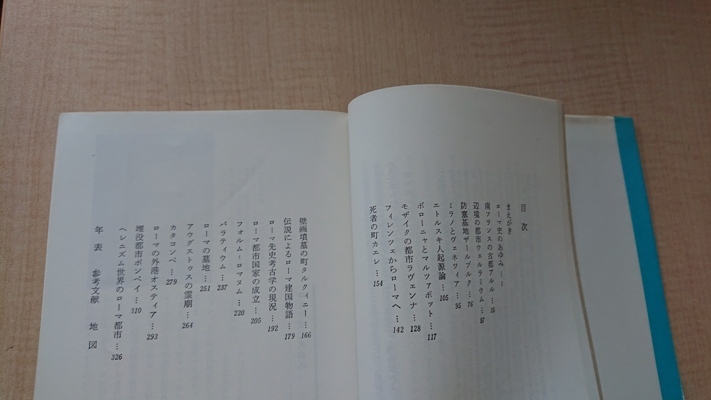 目次
まえがき
ローマ史のあゆみ…1
南フランスの古都アルル…28
辺境の都市ウェルラーミウム…57
防塞基地ザールブルク…76
ミラノとヴェネツィア…95
エトルスキ人起源論…105
ボローニャとマルツァボット…117
モザイクの都市ラヴェンナ…128
フィレンツェからローマへ…142
死者の町カエレ…154
壁画墳墓の町タルクィニー…166
伝説によるローマ建国物語…179
ローマ先史考古学の現況…192
ローマ都市国家の成立…205
フォルム・ロマヌム…220
パラティウム…237
ローマの墓地…251
アウグストゥスの霊廟…264
カタコンベ…279
ローマの外港オスティア…293
埋没都市ポンペイ…310
ヘレニズム世界のローマ都市…326
年表 参考文献 地図